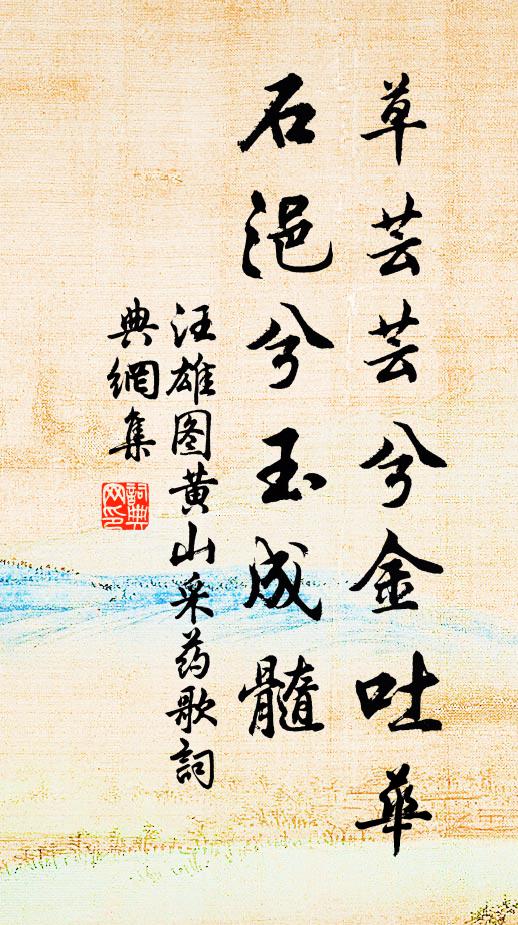 草芸芸兮金吐華
石浥兮玉成髓
汪雄图黄山采药歌詞
典網集
詞典
网印